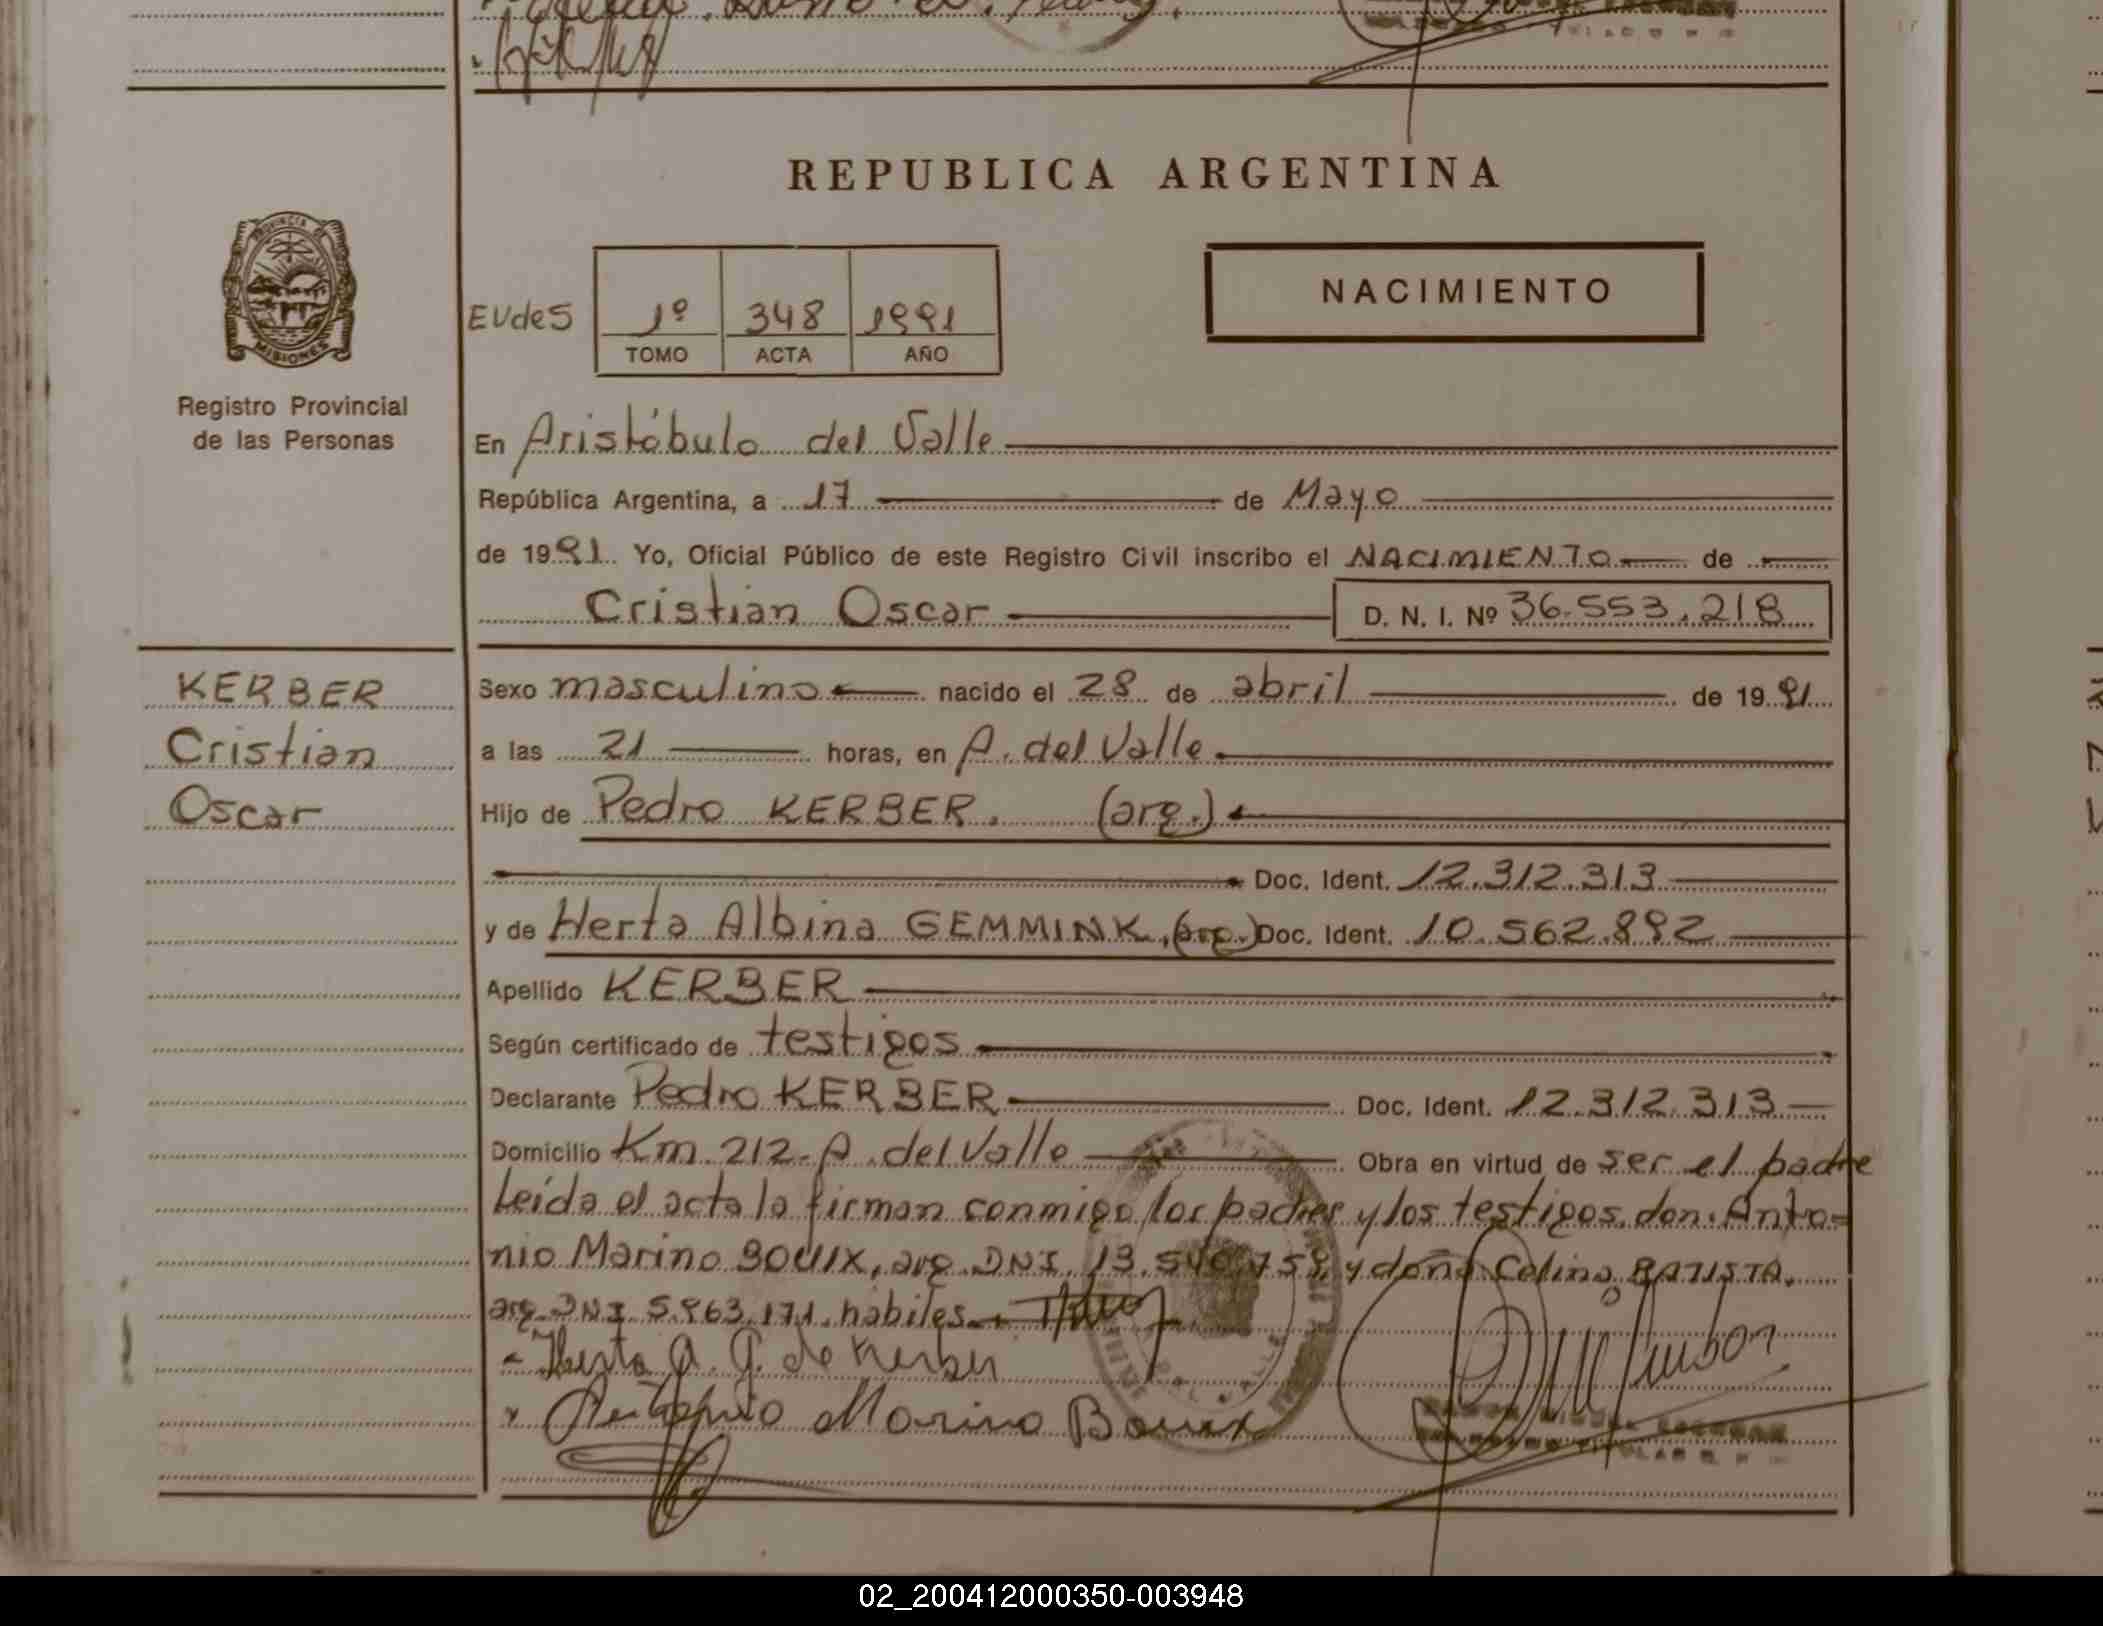 REPUBLICA ARGENTINA
PROVINCIA DE
MISIONES
Registro Provincial
de las Personas
EVdeS
1º 348 1991
TOMO ACTA AÑO
NACIMIENTO
En Aristóbulo del Valle
República Argentina, a 17 de Mayo
de 1991. Yo, Oficial Público de este Registro Civil inscribo el NACIMIENTO de
Cristian Oscar D. N. I. Nº 36.553.218
KERBER
Cristian
Oscar
Sexo masculino nacido el 28 de abril de 1991
a las 21 horas, en A. del Valle
Hijo de Pedro KERBER. (arg.)
Doc. Ident. 12.312.313
y de Herta Albina GEMMINK, (arg.) Doc. Ident. 10.562.892
Apellido KERBER
Según certificado de testigos
Declarante Pedro KERBER Doc. Ident. 12.312.313
Domicilio Km 212- A. del Valle Obra en virtud de ser el padre
Leída el acta la firman conmigo los padres y los testigos don Anto=
nio Marino BOUIX, arg. DNI. 13.540.759, y doña Celina BATISTA.
arg. DNI 5.963.171. hábiles
- Herta A. G. de Kerber
Antonio Marino Bouix
02_200412000350-003948